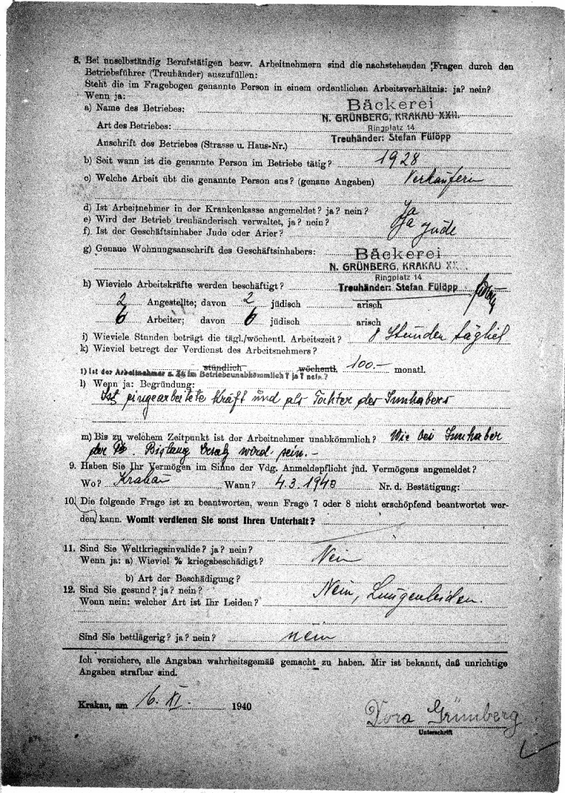 8. Bei unselbständig Berufstätigen bezw. Arbeitnehmern sind die nachstehenden Fragen durch den
Betriebsführer (Treuhänder) auszufüllen:
Steht die im Fragebogen genannte Person in einem ordentlichen Arbeitsverhältnis: ja? nein?
Wenn ja:
a) Name des Betriebes: Bäckerei
N. GRÜNBERG, KRAKAU XXII.
Art des Betriebes: Ringplatz 14
Treuhänder: Stefan Fülöpp
Anschrift des Betriebes (Strasse u. Haus-Nr.)
b) Seit wann ist die genannte Person im Betriebe tätig? 1928
c) Welche Arbeit übt die genannte Person aus? (genaue Angaben) Verkäuferin
d) Ist Arbeitnehmer in der Krankenkasse angemeldet? ja? nein? Ja
e) Wird der Betrieb treuhänderisch verwaltet, ja? nein? Ja
f) Ist der Geschäftsinhaber Jude oder Arier? Jude
g) Genaue Wohnungsanschrift des Geschäftsinhabers: Bäckerei
N. GRÜNBERG, KRAKAU
Ringplatz 14
h) Wieviele Arbeitskräfte werden beschäftigt? Treuhänder: Stefan Fülöpp
2 Angestellte; davon 2 jüdisch arisch
6 Arbeiter; davon 6 jüdisch arisch
i) Wieviele Stunden beträgt die tägl./wöchentl. Arbeitszeit? 8 Stunden täglich
k) Wieviel betreget der Verdienst des Arbeitsnehmers?
stündlich wöchentl. 100.- monatl.
l) Ist der Arbeitnehmer z. Zt im Betriebe unabkömmlich? ja? nein?
l) Wenn ja: Begründung:
Ist eingearbeitete Kraft und als Tochter des Innhabers
m) Bis zu welchem Zeitpunkt ist der Arbeitnehmer unabkömmlich? Wie bei Innhaber
wird sein. -
9. Haben Sie Ihr Vermögen im Sinne der Vdg. Anmeldepflicht jüd. Vermögens angemeldet?
Wo? Krakau Wann? 4.3.1940 Nr. d. Bestätigung:
10. Die folgende Frage ist zu beantworten, wenn Frage 7 oder 8 nicht erschöpfend beantwortet wer-
den kann. Womit verdienen Sie sonst Ihren Unterhalt?
11. Sind Sie Weltkriegsinvalide? ja? nein? Nein
Wenn ja: a) Wieviel % kriegsbeschädigt?
b) Art der Beschädigung?
12. Sind Sie gesund? ja? nein? Nein, Lungenleiden.
Wenn nein: welcher Art ist Ihr Leiden?
Sind Sie bettlägerig? ja? nein? nein
Ich versichere, alle Angaban wahrheitsgemäß gemacht zu haben. Mir ist bekannt, daß unrichtige
Angaben strafbar sind.
Krakau, am 16. XI. 1940
Dora Grünberg
Unterschrift